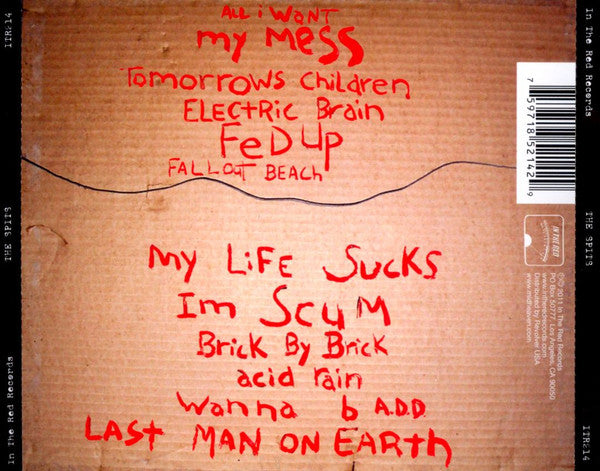 ALL i WANT
my MESS
TOMORROWS CHILDREN
ELECTRIC BRAIN
FED UP
FALLOUT BEACH
MY LiFE SUCKS
Im SCUM
Brick By Brick
acid rain
Wanna b A.D.D.
LAST MAN ON EARTH
ITR214
THE SPITS
In The Red Records
In The Red Records
THE SPITS
ITR214
7 59718 52142 9
IN THE RED
℗© 2011 In The Red Records
PO Box 50777, Los Angeles, CA 90050
www.intheredrecords.com
Distributed by Revolver USA
www.midheaven.com